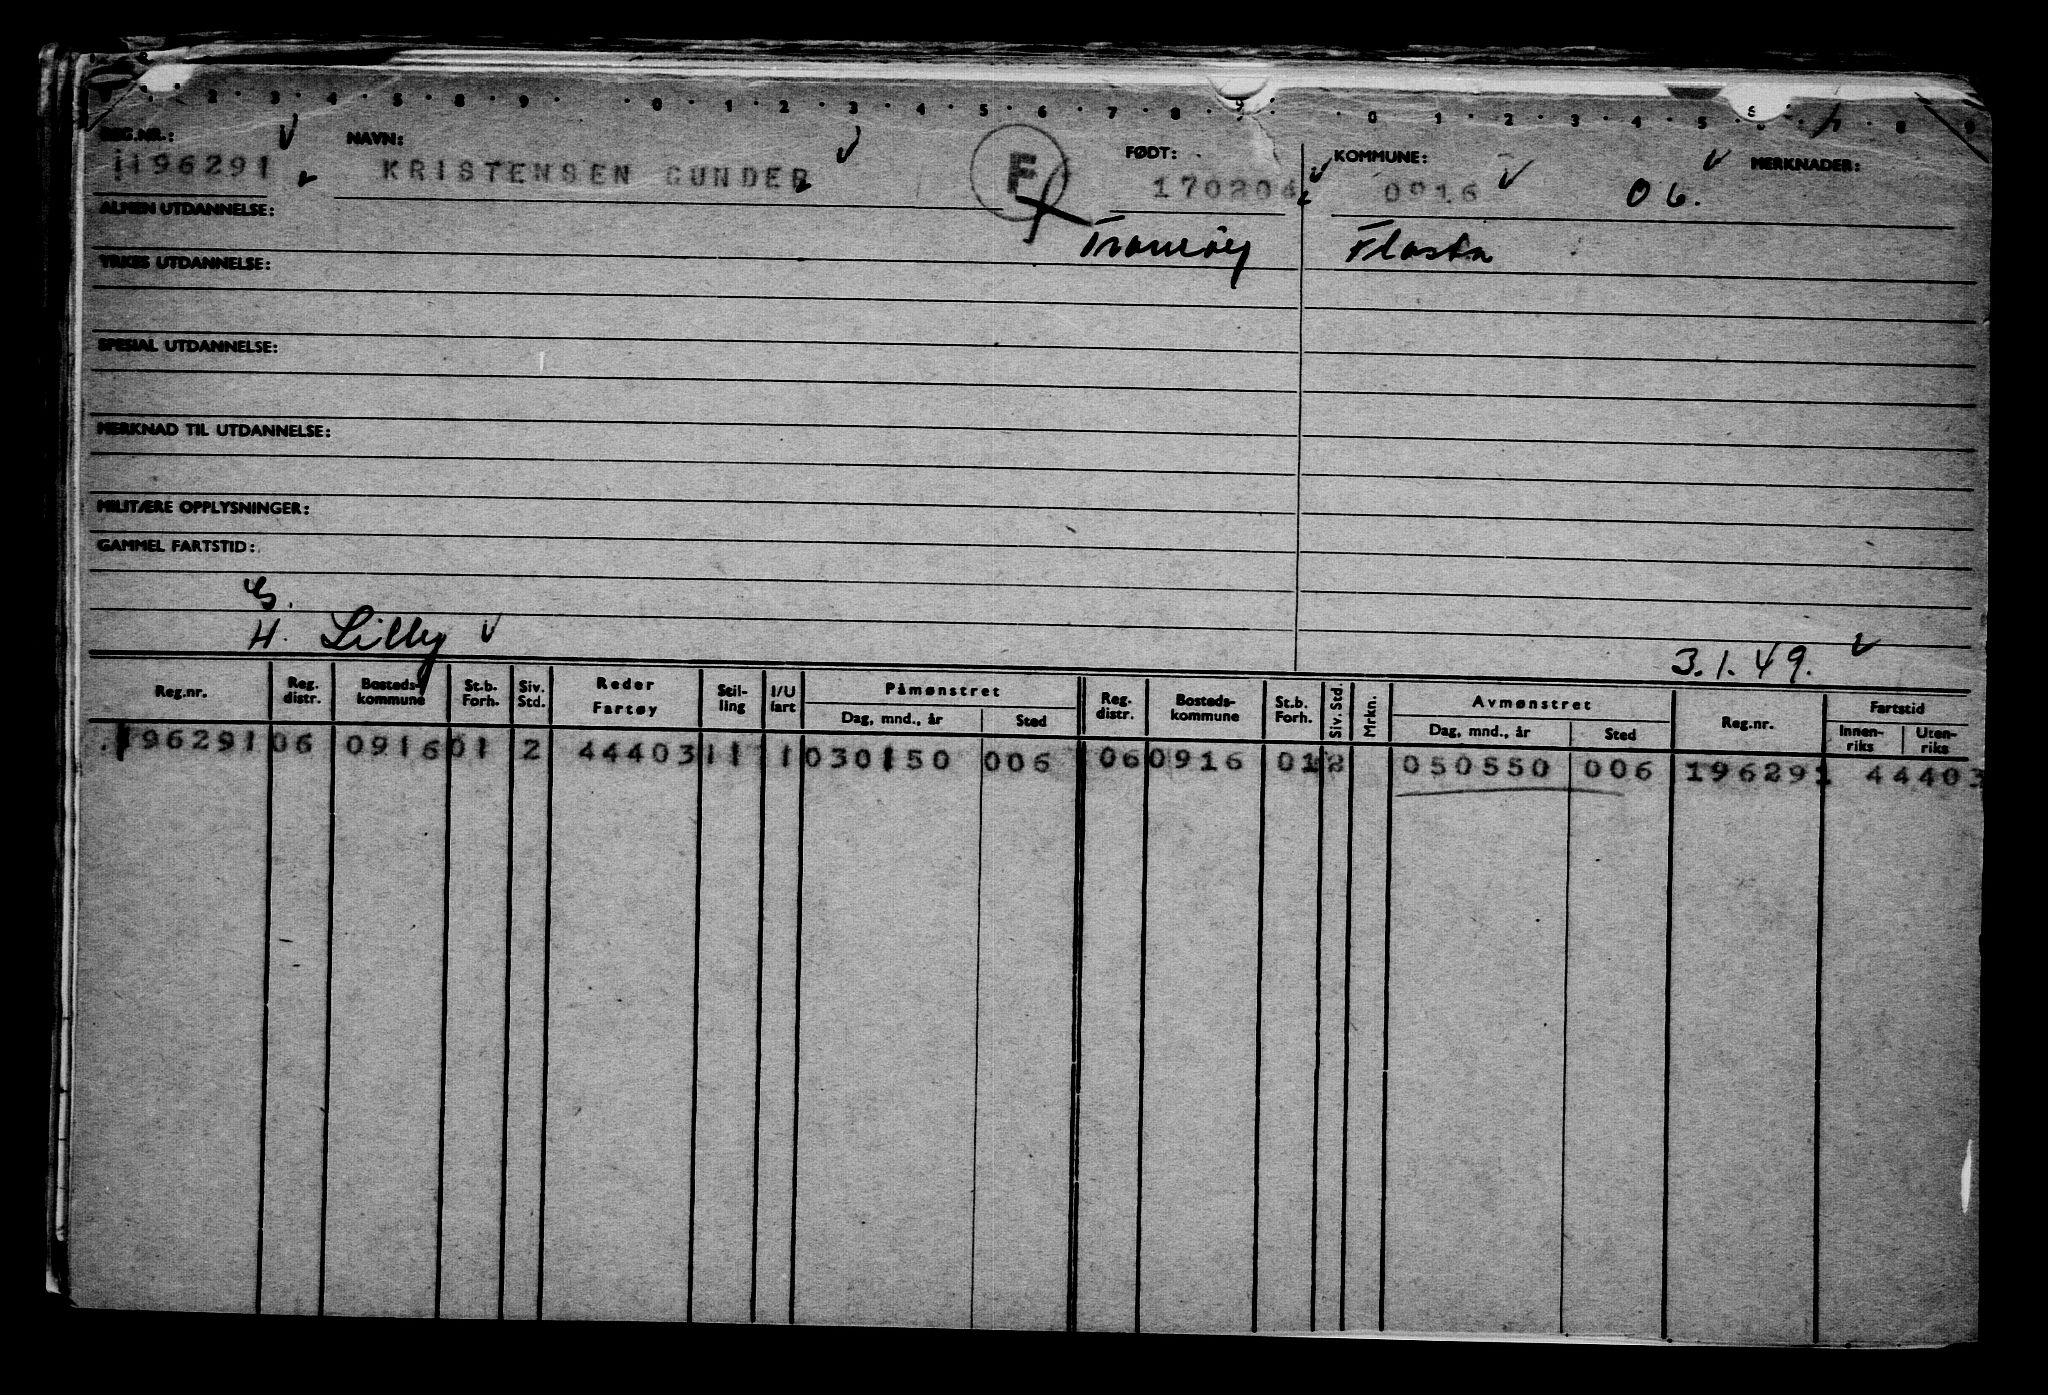 1 2 3 4 5 8 9 0 1 2 3 4 5 6 7 8 9 0 1 2 3 4 5 6 7 8 9
REG.NR.: NAVN: FØDT: KOMMUNE: MERKNADER:
196291 KRISTENSEN GUNDER F 170204 0916 06.
ALMEN UTDANNELSE: Tromøy Flosta
YRKES UTDANNELSE:
SPESIAL UTDANNELSE:
MERKNAD TIL UTDANNELSE:
MILITÆRE OPPLYSNINGER:
GAMMEL FARTSTID:
H. Lilly 3.1.49.
Reg.nr. Reg. distr. Bosteds-kommune St.b. Forh. Siv. Std. Reder Fartøy Stil-ling I/U fart Påmønstret Dag, mnd., år Sted Reg. distr. Bosteds-kommune St.b. Forh. Siv. Std. Mrkn. Avmønstret Dag, mnd., år Sted Reg.nr. Fartstid Innen-riks Uten-riks
196291 06 0916 01 2 44403 11 1 030150 006 06 0916 01 2 050550 006 196291 44403